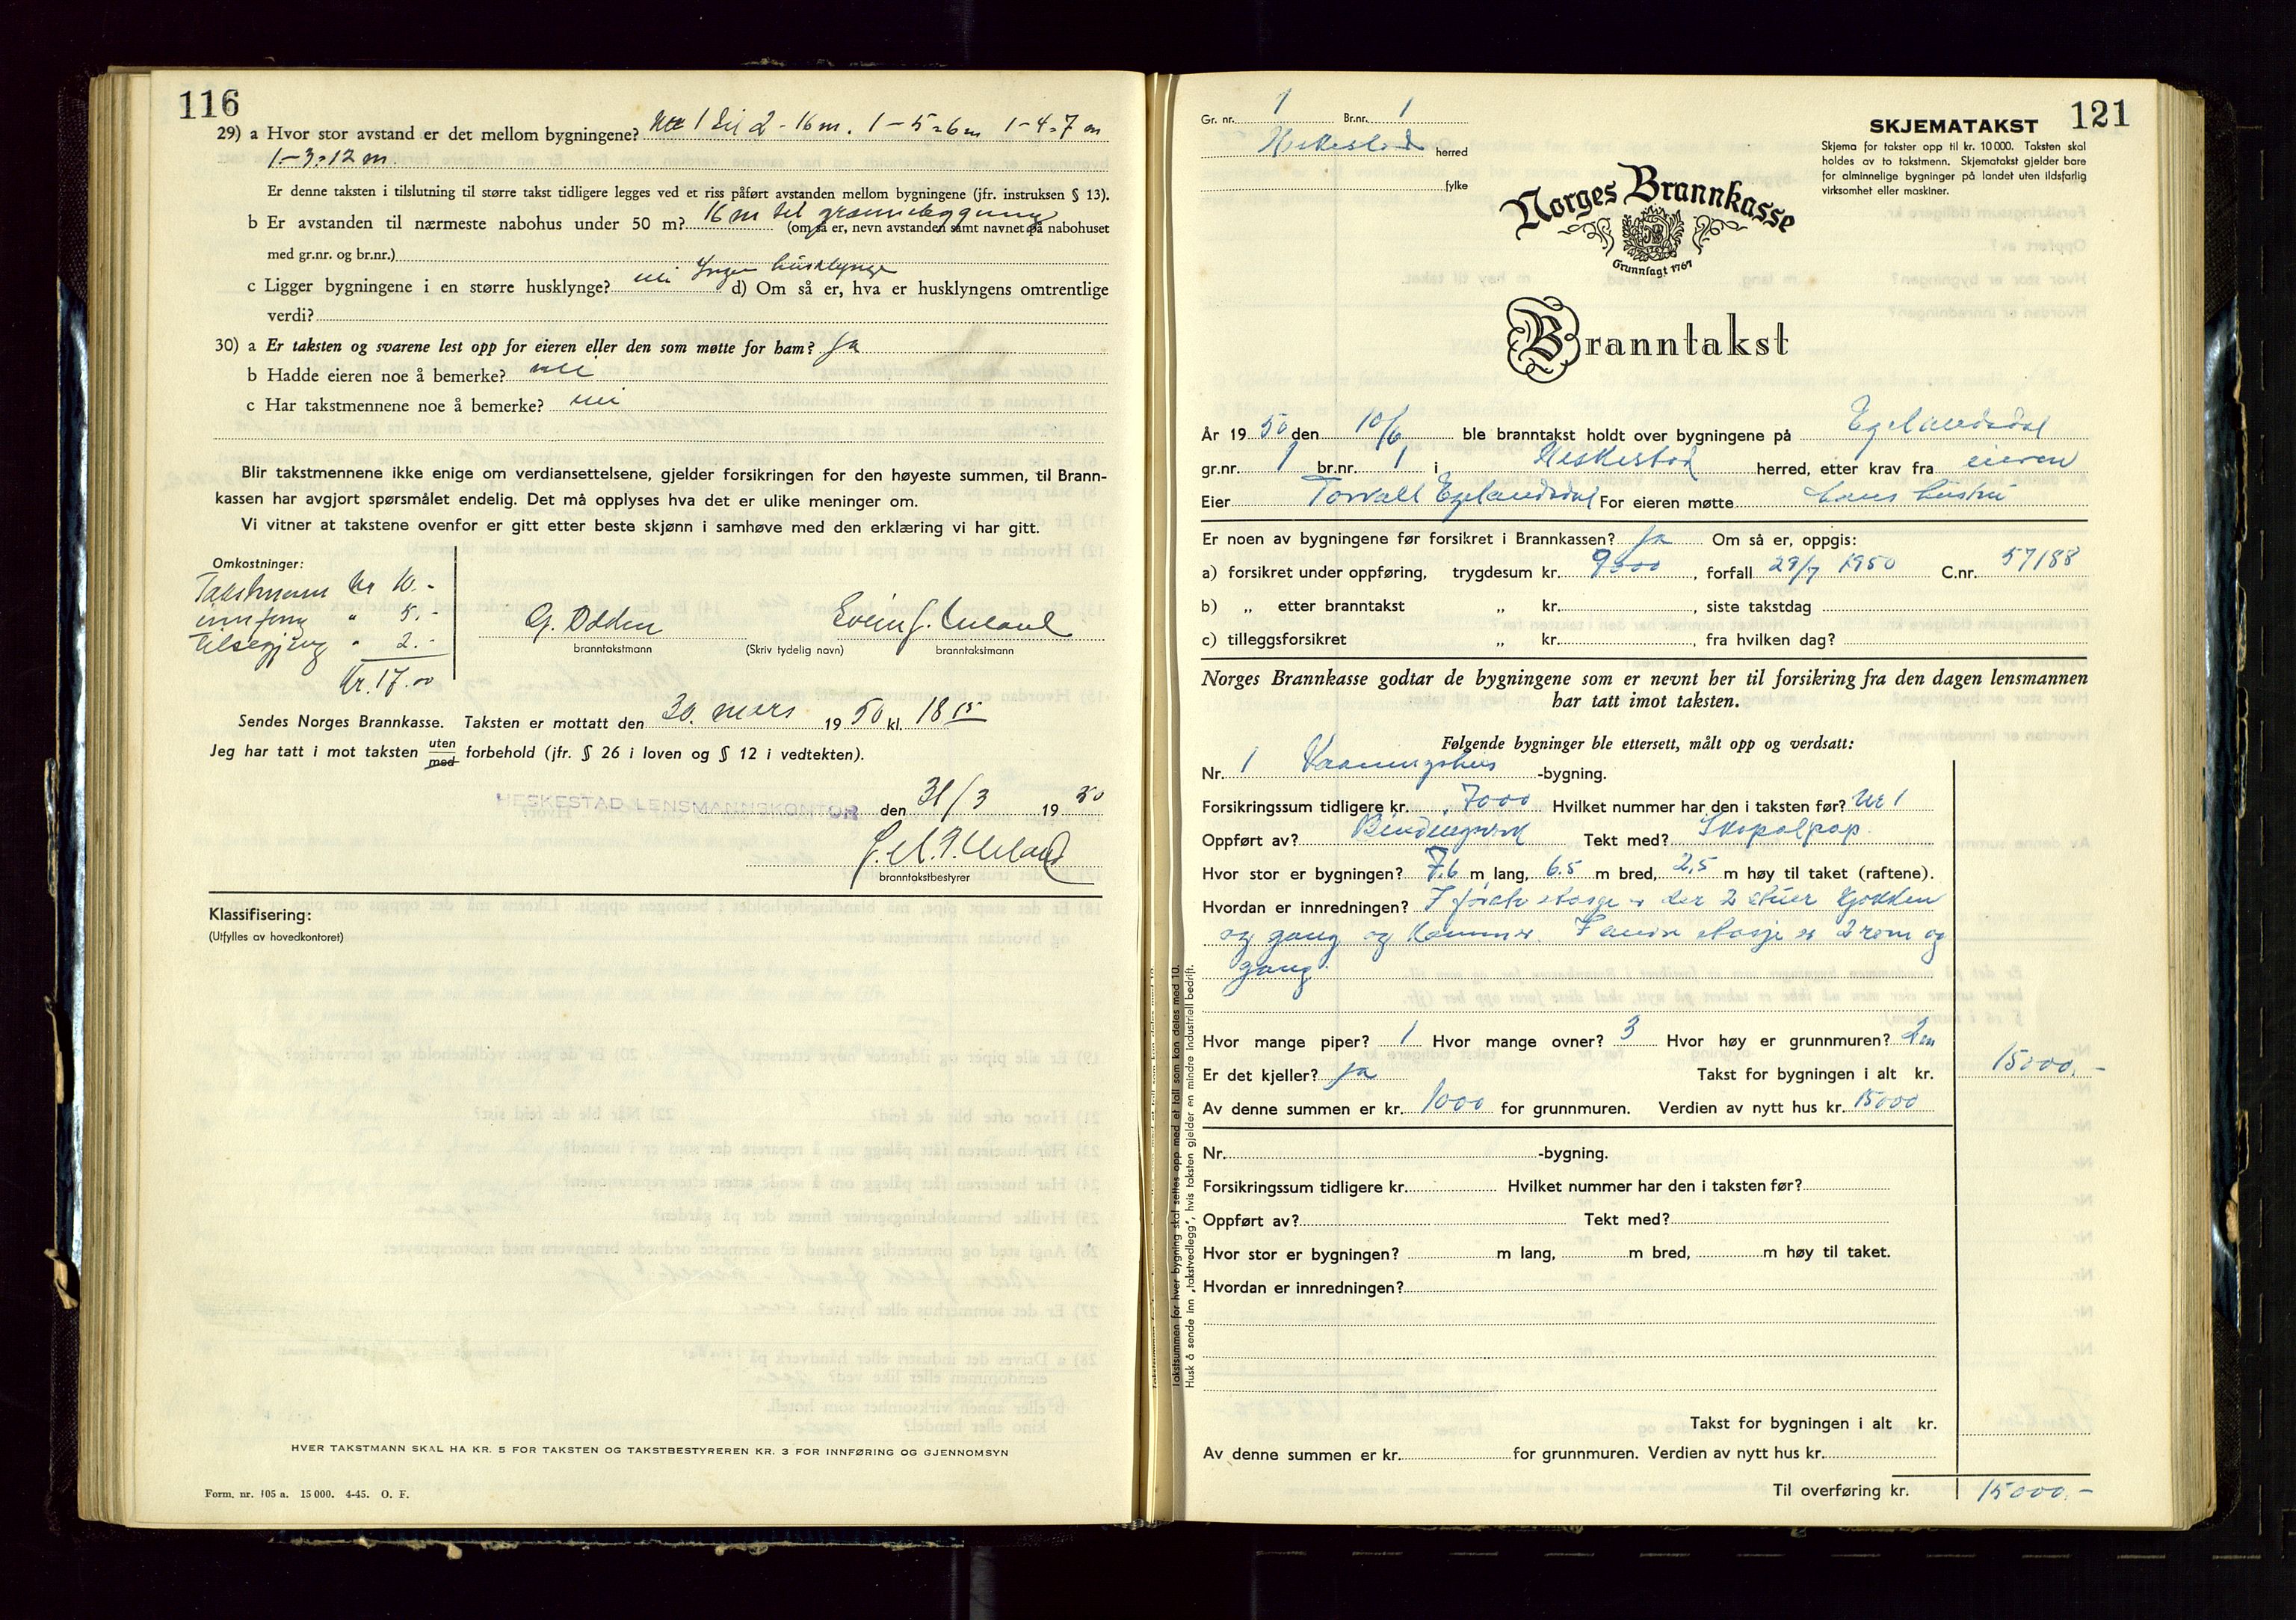 116
29) a Hvor stor avstand er det mellom bygningene? Nr 1 til 2 - 16 m. 1 - 5 = 6 m 1 - 4 = 7 m
1 - 3 = 12 m
Er denne taksten i tilslutning til større takst tidligere legges ved et riss påført avstanden mellom bygningene (jfr. instruksen § 13).
b Er avstanden til nærmeste nabohus under 50 m? 16 m til grannebygning (om så er, nevn avstanden samt navnet på nabohuset
med gr.nr. og br.nr.)
c Ligger bygningene i en større husklynge? nei Ingen husklynge d) Om så er, hva er husklyngens omtrentlige
verdi?
30) a Er taksten og svarene lest opp for eieren eller den som møtte for ham? Ja
b Hadde eieren noe å bemerke? nei
c Har takstmennene noe å bemerke? nei
Blir takstmennene ikke enige om verdiansettelsene, gjelder forsikringen for den høyeste summen, til Brann-
kassen har avgjort spørsmålet endelig. Det må opplyses hva det er ulike meninger om.
Vi vitner at takstene ovenfor er gitt etter beste skjønn i samhøve med den erklæring vi har gitt.
Omkostninger:
Takstmenn kr 10.-
innføring " 5.-
" 2.-
Kr. 17.00
G. Odden
branntakstmann
(Skriv tydelig navn)
Svein J. Ueland
branntakstmann
Sendes Norges Brannkasse. Taksten er mottatt den 30. mars 1950 kl. 18 15
Jeg har tatt i mot taksten uten med forbehold (jfr. § 26 i loven og § 12 i vedtekten).
HESKESTAD LENSMANNSKONTOR den 31/3 1950
Ueland
branntakstbestyrer
Klassifisering:
(Utfylles av hovedkontoret)
HVER TAKSTMANN SKAL HA KR. 5 FOR TAKSTEN OG TAKSTBESTYREREN KR. 3 FOR INNFØRING OG GJENNOMSYN
Form. nr. 105 a. 15 000. 4-45. O. F.
121
Gr. nr. 1 Br.nr. 1
Heskestad herred
fylke
SKJEMATAKST
Skjema for takster opp til kr. 10 000. Taksten skal
holdes av to takstmenn. Skjematakst gjelder bare
for alminnelige bygninger på landet uten ildsfarlig
virksomhet eller maskiner.
Norges Brannkasse
NB
Grunnlagt 1767
Branntakst
År 1950 den 10/6 ble branntakst holdt over bygningene på Egelandsdal
gr.nr. 1 br.nr. 1 i Heskestad herred, etter krav fra eieren
Eier Torvall Egelandsdal For eieren møtte hans hustru
Er noen av bygningene før forsikret i Brannkassen? Ja Om så er, oppgis:
a) forsikret under oppføring, trygdesum kr. 9000, forfall 29/7 1950 C.nr. 57188
b) „ etter branntakst „ kr. , siste takstdag
c) tilleggsforsikret „ kr. , fra hvilken dag?
Norges Brannkasse godtar de bygningene som er nevnt her til forsikring fra den dagen lensmannen
har tatt imot taksten.
Følgende bygninger ble ettersett, målt opp og verdsatt:
Nr. 1 Vaaningshus -bygning.
Forsikringssum tidligere kr. 7000 Hvilket nummer har den i taksten før? Nr 1
Oppført av? Bindingverk Tekt med?
Hvor stor er bygningen? 7.6 m lang, 6.5 m bred, 2,5 m høy til taket (raftene).
Hvordan er innredningen? I første etasje er der 2 stuer kjøkken
og gang og Kammer. I anden etasje er 2 rom og
gang.
Hvor mange piper? 1 Hvor mange ovner? 3 Hvor høy er grunnmuren? 2 m
Er det kjeller? ja Takst for bygningen i alt kr. 15000.-
Av denne summen er kr. 1000 for grunnmuren. Verdien av nytt hus kr. 15000
Nr. -bygning.
Forsikringssum tidligere kr. Hvilket nummer har den i taksten før?
Oppført av? Tekt med?
Hvor stor er bygningen? m lang, m bred, m høy til taket.
Hvordan er innredningen?
Takst for bygningen i alt kr.
Av denne summen er kr. for grunnmuren. Verdien av nytt hus kr.
Til overføring kr. 15000.-
Takstsummen for hver bygning skal settes opp med et tall som kan deles med 10.
Husk å sende inn „takstvedlegg", hvis taksten gjelder en mindre industriell bedrift.